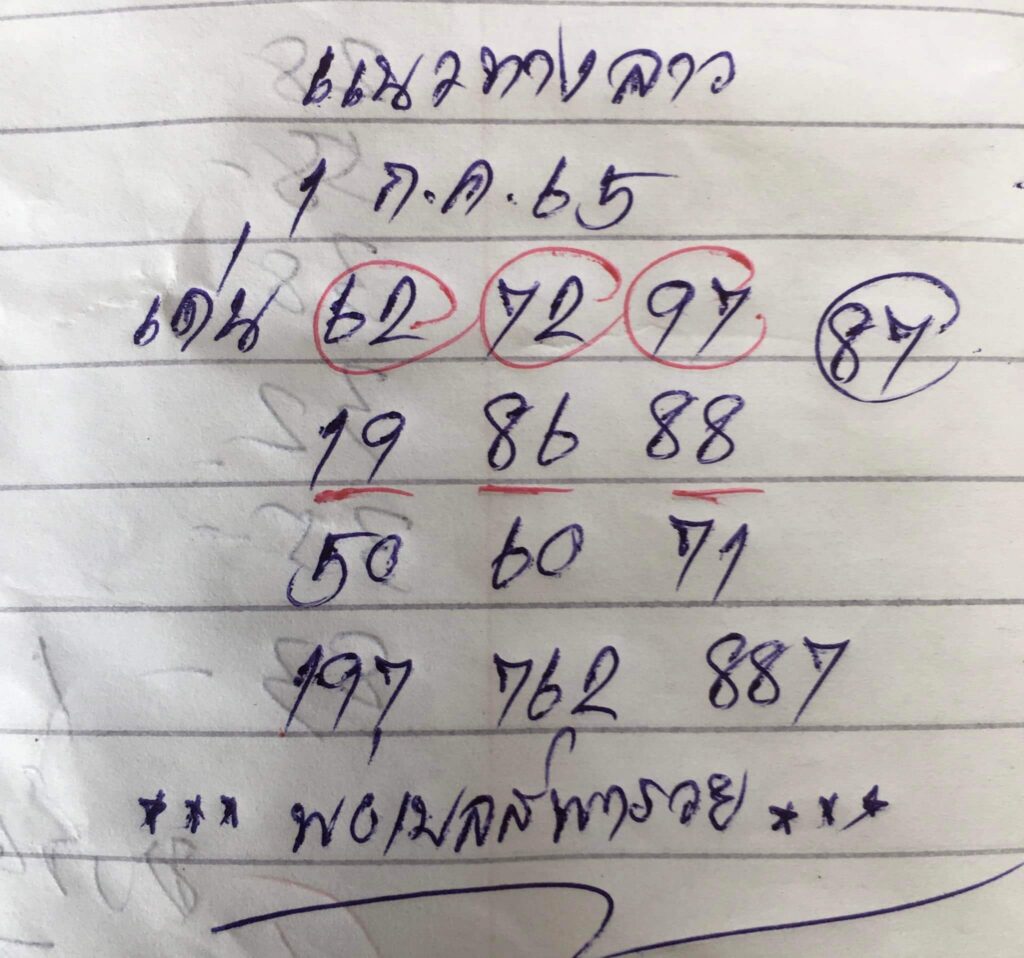 แนวทางลาว
1 ก.ค.65
เด่น 62 72 97 87
19 86 88
50 60 71
197 762 887
*** พารวย ***